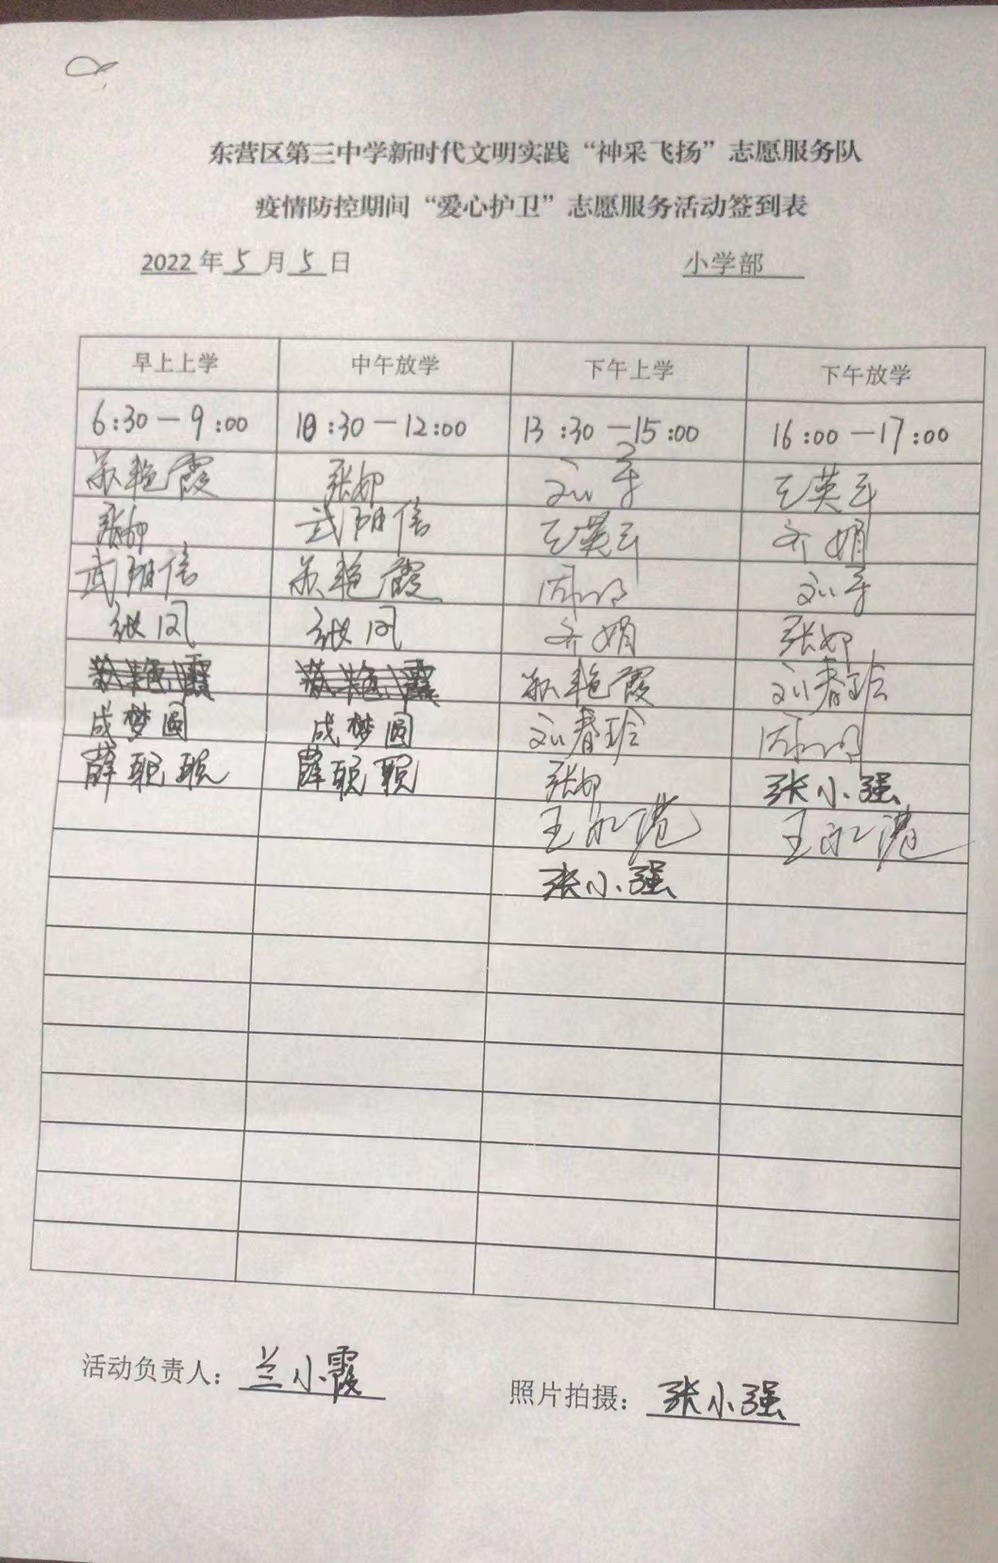 东营区第三中学新时代文明实践“神采飞扬”志愿服务队
疫情防控期间“爱心护卫”志愿服务活动签到表
2022年5月5日 小学部
早上上学 中午放学 下午上学 下午放学
6:30—9:00 10:30—12:00 13:30—15:00 16:00—17:00
苏艳霞 王英云
武阳信 王英云 齐娟
武阳信 苏艳霞
张凤 张凤 齐娟
苏艳霞 刘春玲
成梦圆 成梦圆 刘春玲
薛聪聪 薛聪聪 张小强
王永港 王永港
张小强
活动负责人：兰小霞 照片拍摄：张小强